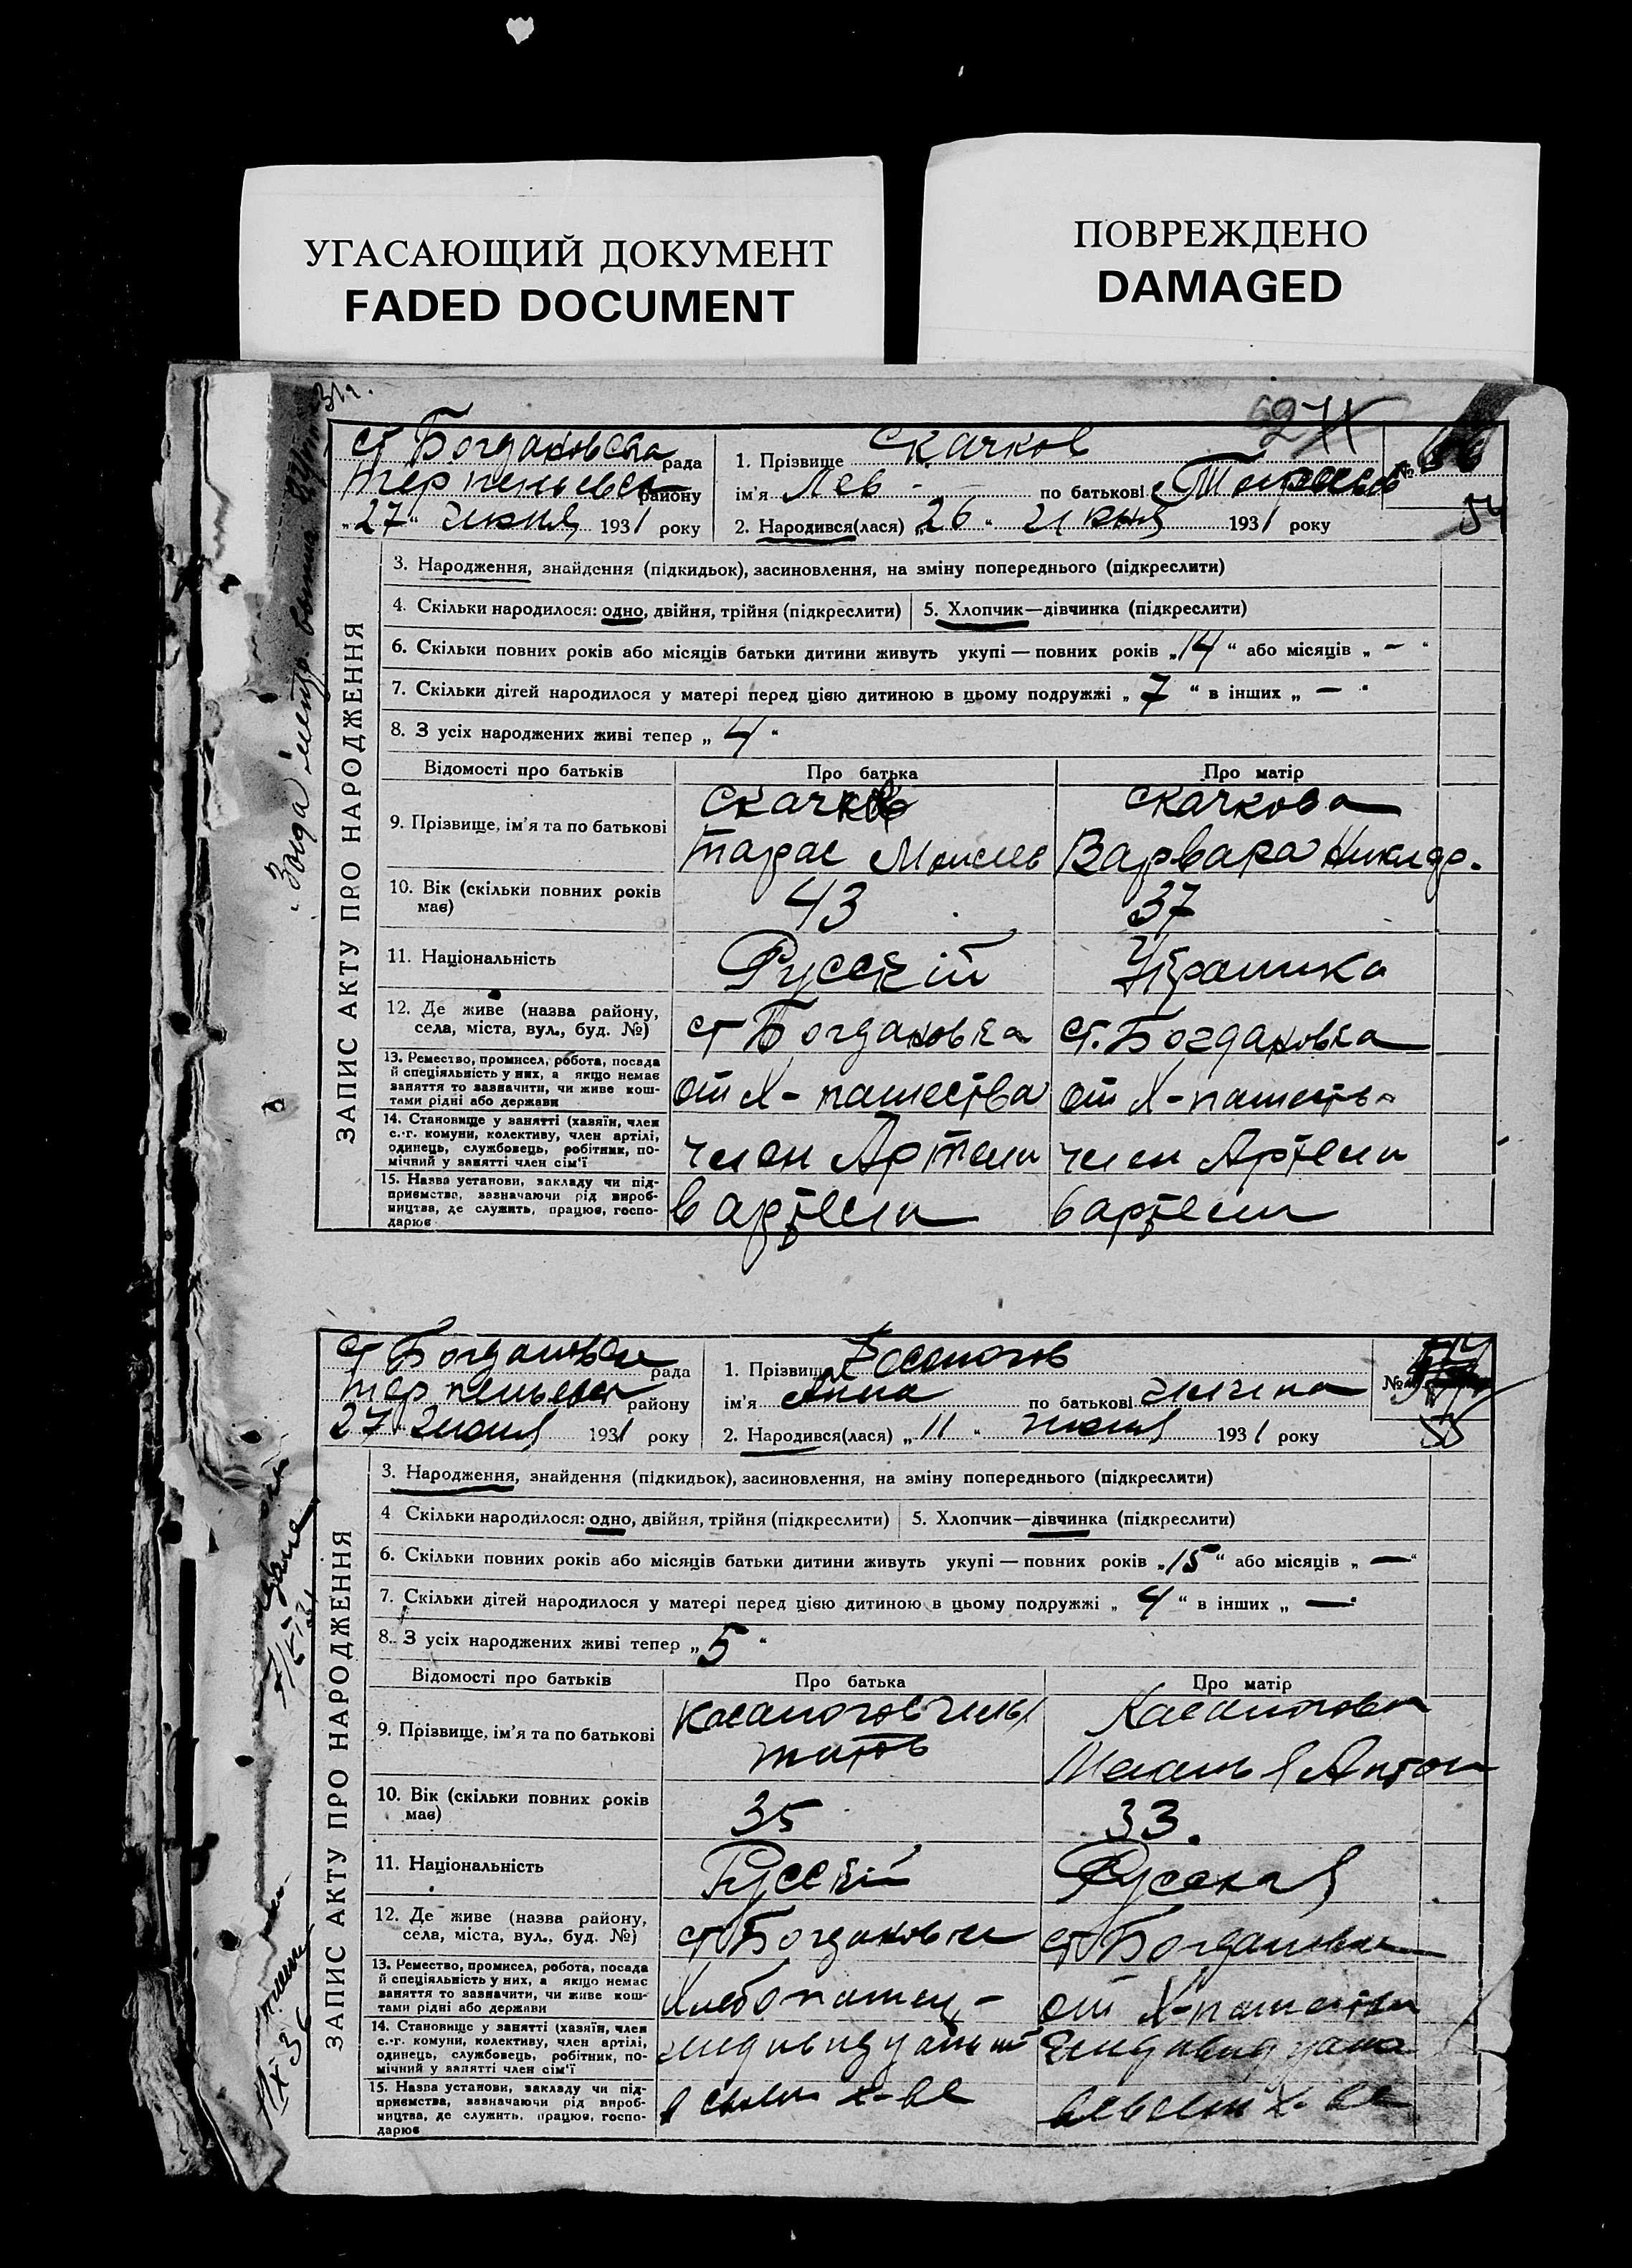 УГАСАЮЩИЙ ДОКУМЕНТ
FADED DOCUMENT
ПОВРЕЖДЕНО
DAMAGED
ЗАПИС АКТУ ПРО НАРОДЖЕННЯ
ст Богдановська рада
району
„27“ июня 1931 року
1. Прізвище Скачков
ім’я Лев по батькові
№
54
2. Народився(лася) „26“ июня 1931 року
3. Народження, знайдення (підкидьок), засиновлення, на зміну попереднього (підкреслити)
4. Скільки народилося: одно, двійня, трійня (підкреслити) 5. Хлопчик—дівчинка (підкреслити)
6. Скільки повних років або місяців батьки дитини живуть укупі — повних років „14“ або місяців „ — “
7. Скільки дітей народилося у матері перед цією дитиною в цьому подружжі „ 7 “ в інших „ — “
8. З усіх народжених живі тепер „ 4 “
Відомості про батьків Про батька Про матір
9. Прізвище, ім’я та по батькові Скачков Скачкова
Тарас Моисеев Варвара Никифр.
10. Вік (скільки повних років має) 43 37
11. Національність Русскій Украинка
12. Де живе (назва району, села, міста, вул., буд. №) ст Богдановка ст. Богдановка
13. Ремество, промисел, робота, посада й спеціяльність у них, а якщо немає заняття то зазначити, чи живе коштами рідні або держави от х-пашества от х-пашеств
14. Становище у занятті (хазяїн, член с.-г. комуни, колективу, член артілі, одинець, службовець, робітник, помічний у занятті член сім’ї член Артели член Артели
15. Назва установи, закладу чи підприємства, зазначаючи рід виробництва, де служить, працює, господарює в артели в артели
ЗАПИС АКТУ ПРО НАРОДЖЕННЯ
ст Богдановка рада
району
27 июня 1931 року
1. Прізвище Косоногов
ім’я Анна по батькові
№
55
2. Народився(лася) „11“ июня 1931 року
3. Народження, знайдення (підкидьок), засиновлення, на зміну попереднього (підкреслити)
4 Скільки народилося: одно, двійня, трійня (підкреслити) 5. Хлопчик—дівчинка (підкреслити)
6. Скільки повних років або місяців батьки дитини живуть укупі — повних років „15“ або місяців „ — “
7. Скільки дітей народилося у матері перед цією дитиною в цьому подружжі „ 4 “ в інших „ —
8. З усіх народжених живі тепер „ 5 “
Відомості про батьків Про батька Про матір
9. Прізвище, ім’я та по батькові Косоногов Косоногова
Титов Антон
10. Вік (скільки повних років має) 35 33
11. Національність Русскій Русская
12. Де живе (назва району, села, міста, вул., буд. №) ст Богдановка ст Богдановка
13. Ремество, промисел, робота, посада й спеціяльність у них, а якщо немає заняття то зазначити, чи живе коштами рідні або держави Хлебопашец от х-пашества
14. Становище у занятті (хазяїн, член с.-г. комуни, колективу, член артілі, одинець, службовець, робітник, помічний у занятті член сім’ї
15. Назва установи, закладу чи підприємства, зазначаючи рід виробництва, де служить, працює, господарює в своем х-ве в своем х-ве